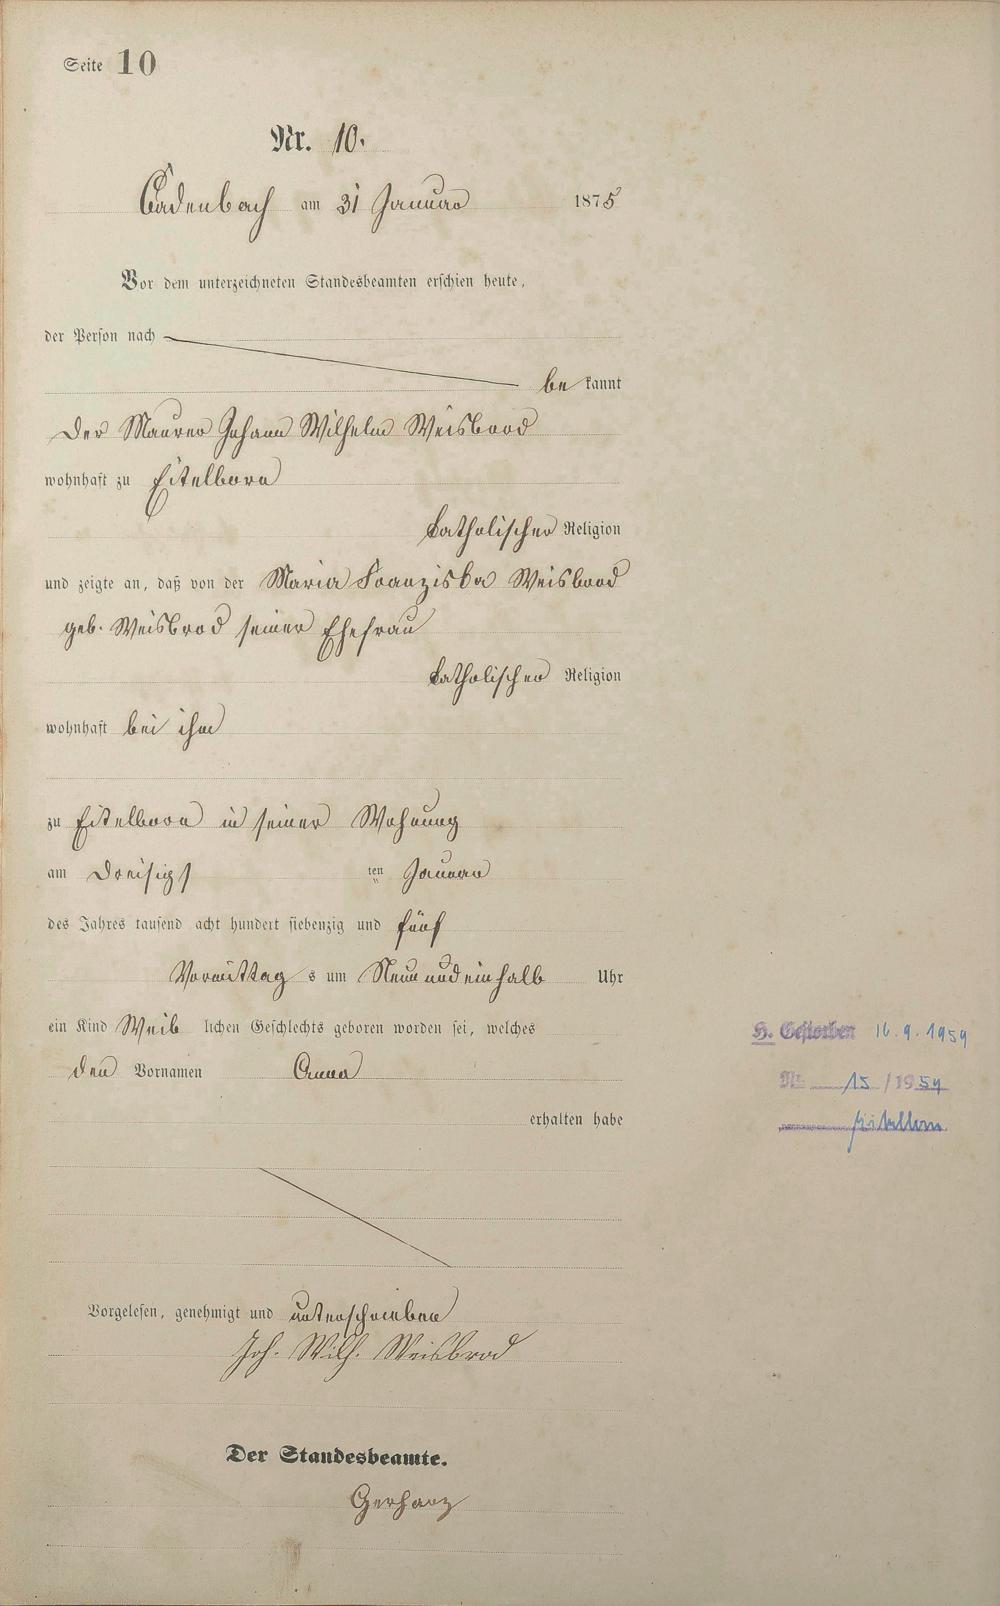 Seite 10
Nr. 10.
Cadenbach am 31 Januar 1875
Vor dem unterzeichneten Standesbeamten erschien heute,
der Person nach
be kannt
der Maurer Johann Wilhelm Weisbrod
wohnhaft zu Eitelborn
katholischer Religion
und zeigte an, daß von der Maria Franziska Weisbrod
geb. Weisbrod seiner Ehefrau
katholischer Religion
wohnhaft bei ihm
zu Eitelborn in seiner Wohnung
am Dreisigst ten Januar
des Jahres tausend acht hundert siebenzig und fünf
Vormittag s um Neun und einhalb Uhr
ein Kind Weib lichen Geschlechts geboren worden sei, welches
den Vornamen Anna
erhalten habe
H. Gestorben 16.9.1959
Nr. 15 / 1959
Eitelborn
Vorgelesen, genehmigt und unterschrieben
Joh. Wilh. Weisbrod
Der Standesbeamte.
Gerharz